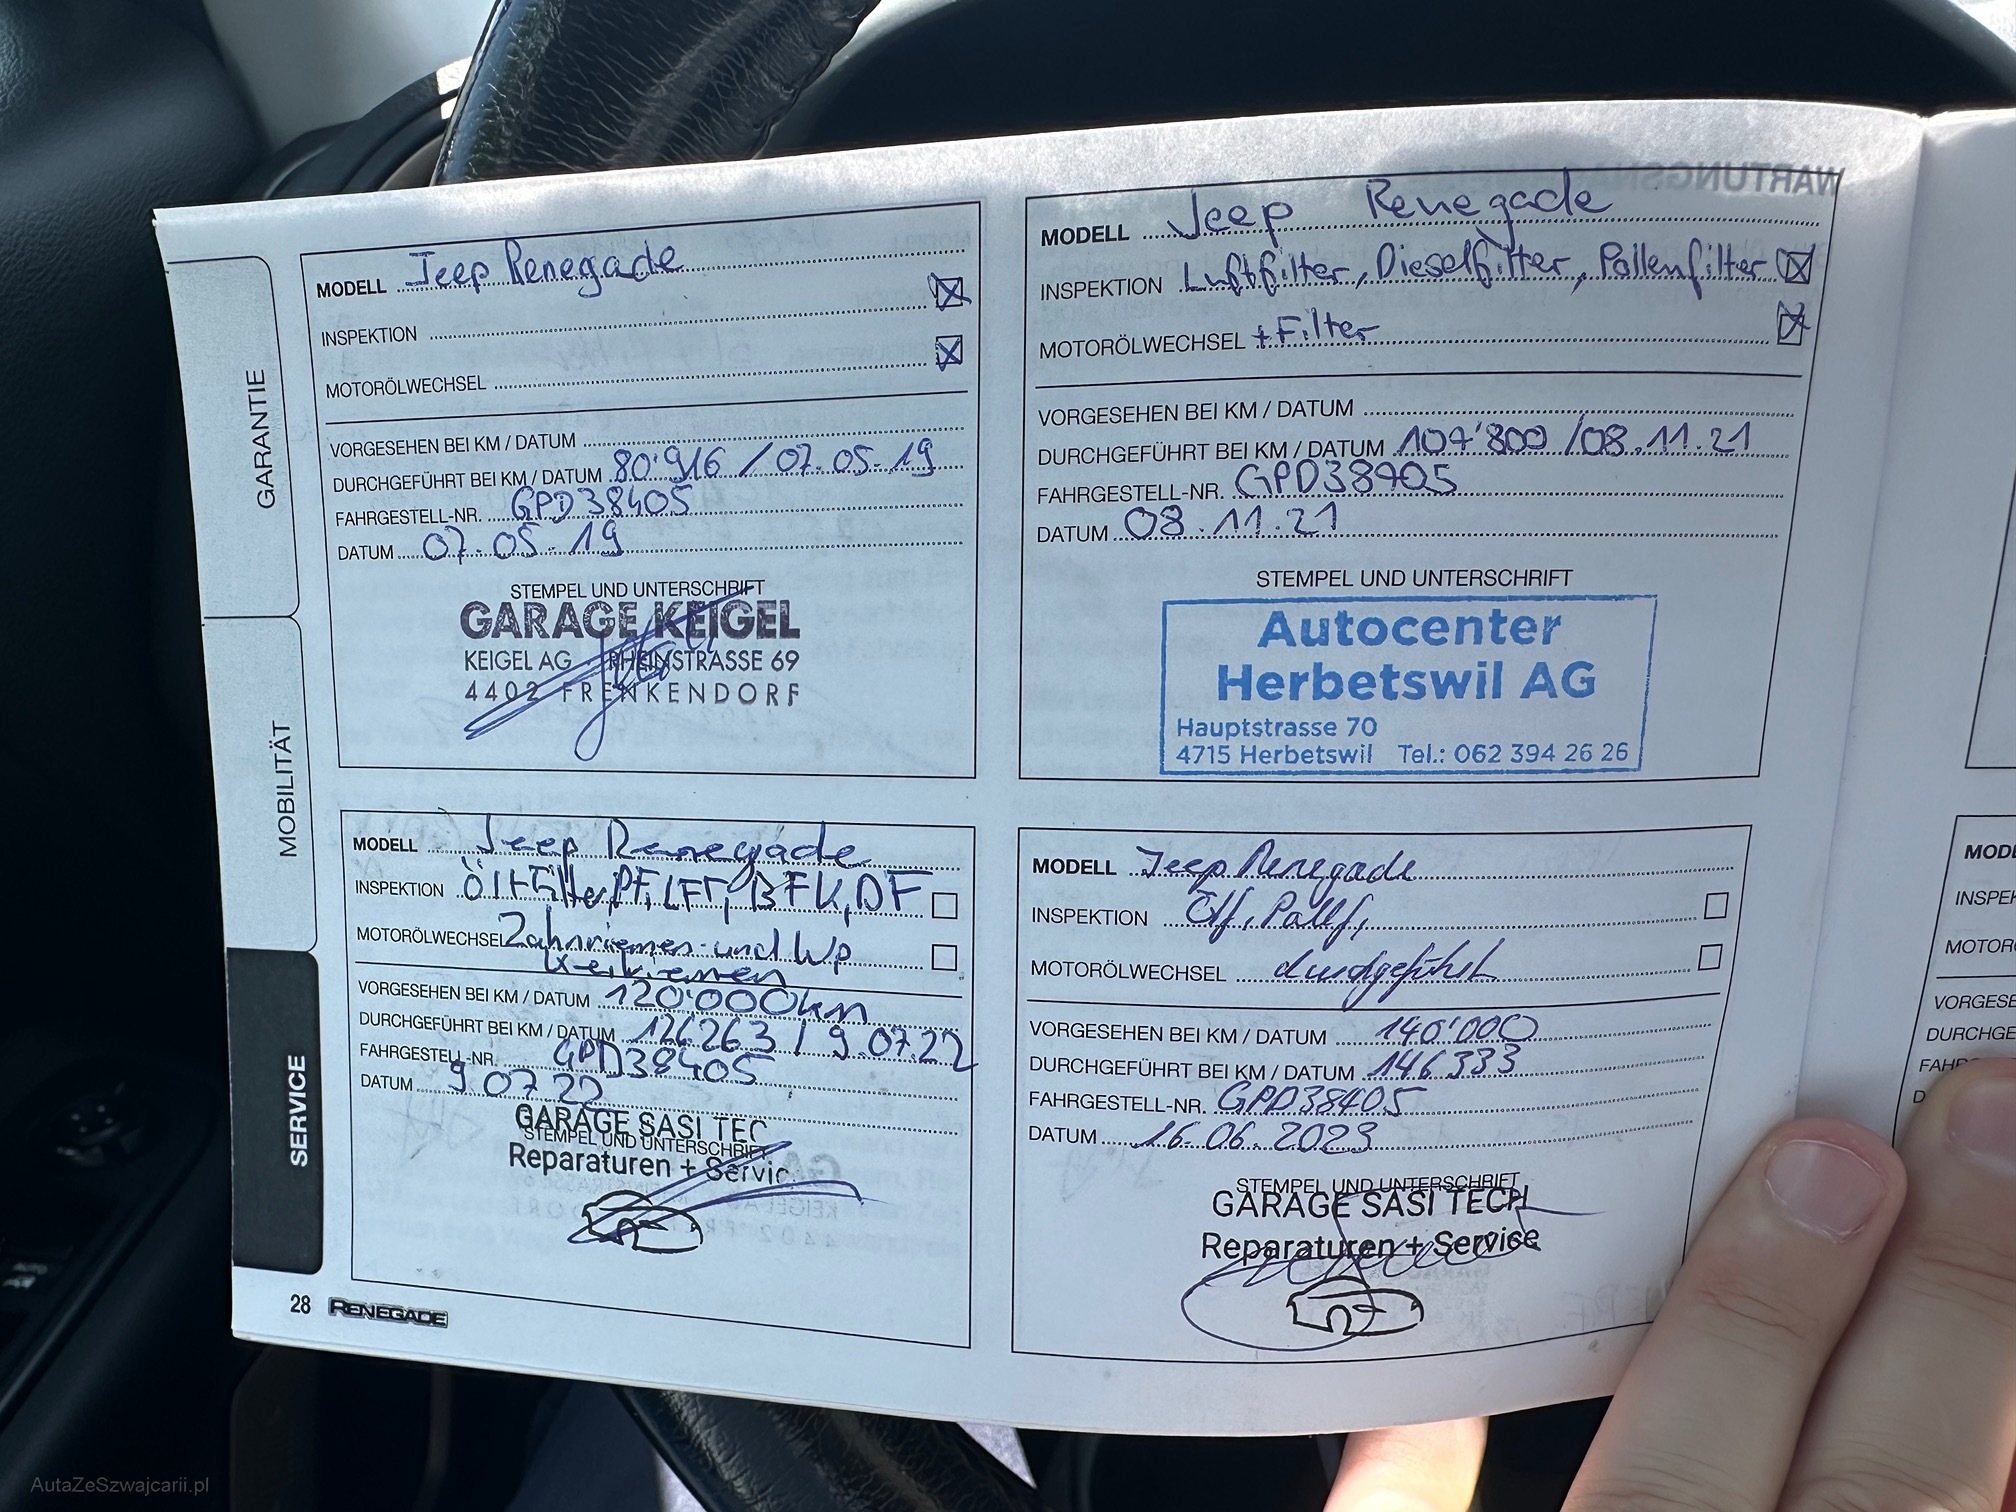 GARANTIE
MOBILITÄT
SERVICE
MODELL Jeep Renegade
INSPEKTION
MOTORÖLWECHSEL
VORGESEHEN BEI KM / DATUM
DURCHGEFÜHRT BEI KM / DATUM 80'916 / 07.05.19
FAHRGESTELL-NR. GPD38405
DATUM 07.05.19
STEMPEL UND UNTERSCHRIFT
GARAGE KEIGEL
KEIGEL AG RHEINSTRASSE 69
4402 FRENKENDORF
MODELL Jeep Renegade
INSPEKTION Luftfilter, Dieselfilter, Pollenfilter
MOTORÖLWECHSEL + Filter
VORGESEHEN BEI KM / DATUM
DURCHGEFÜHRT BEI KM / DATUM 107'800 / 08.11.21
FAHRGESTELL-NR. GPD38405
DATUM 08.11.21
STEMPEL UND UNTERSCHRIFT
Autocenter
Herbetswil AG
Hauptstrasse 70
4715 Herbetswil Tel.: 062 394 26 26
MODELL Jeep Renegade
INSPEKTION Öl+Filter, PF, LFT, BFK, DF
MOTORÖLWECHSEL Zahnriemen und Wp
Keilriemen
VORGESEHEN BEI KM / DATUM 120'000km
DURCHGEFÜHRT BEI KM / DATUM 126263 / 9.07.22
FAHRGESTELL-NR. GPD38405
DATUM 9.07.22
GARAGE SASI TEC
STEMPEL UND UNTERSCHRIFT
Reparaturen + Servic
MODELL Jeep Renegade
INSPEKTION Ölf, Pollf,
MOTORÖLWECHSEL durchgeführt
VORGESEHEN BEI KM / DATUM 140'000
DURCHGEFÜHRT BEI KM / DATUM 146333
FAHRGESTELL-NR. GPD38405
DATUM 16.06.2023
STEMPEL UND UNTERSCHRIFT
GARAGE SASI TECH
Reparaturen + Service
28 RENEGADE
MOD
INSPE
MOTOR
VORGESE
DURCHGE
FAH
D
AutaZeSzwajcarii.pl